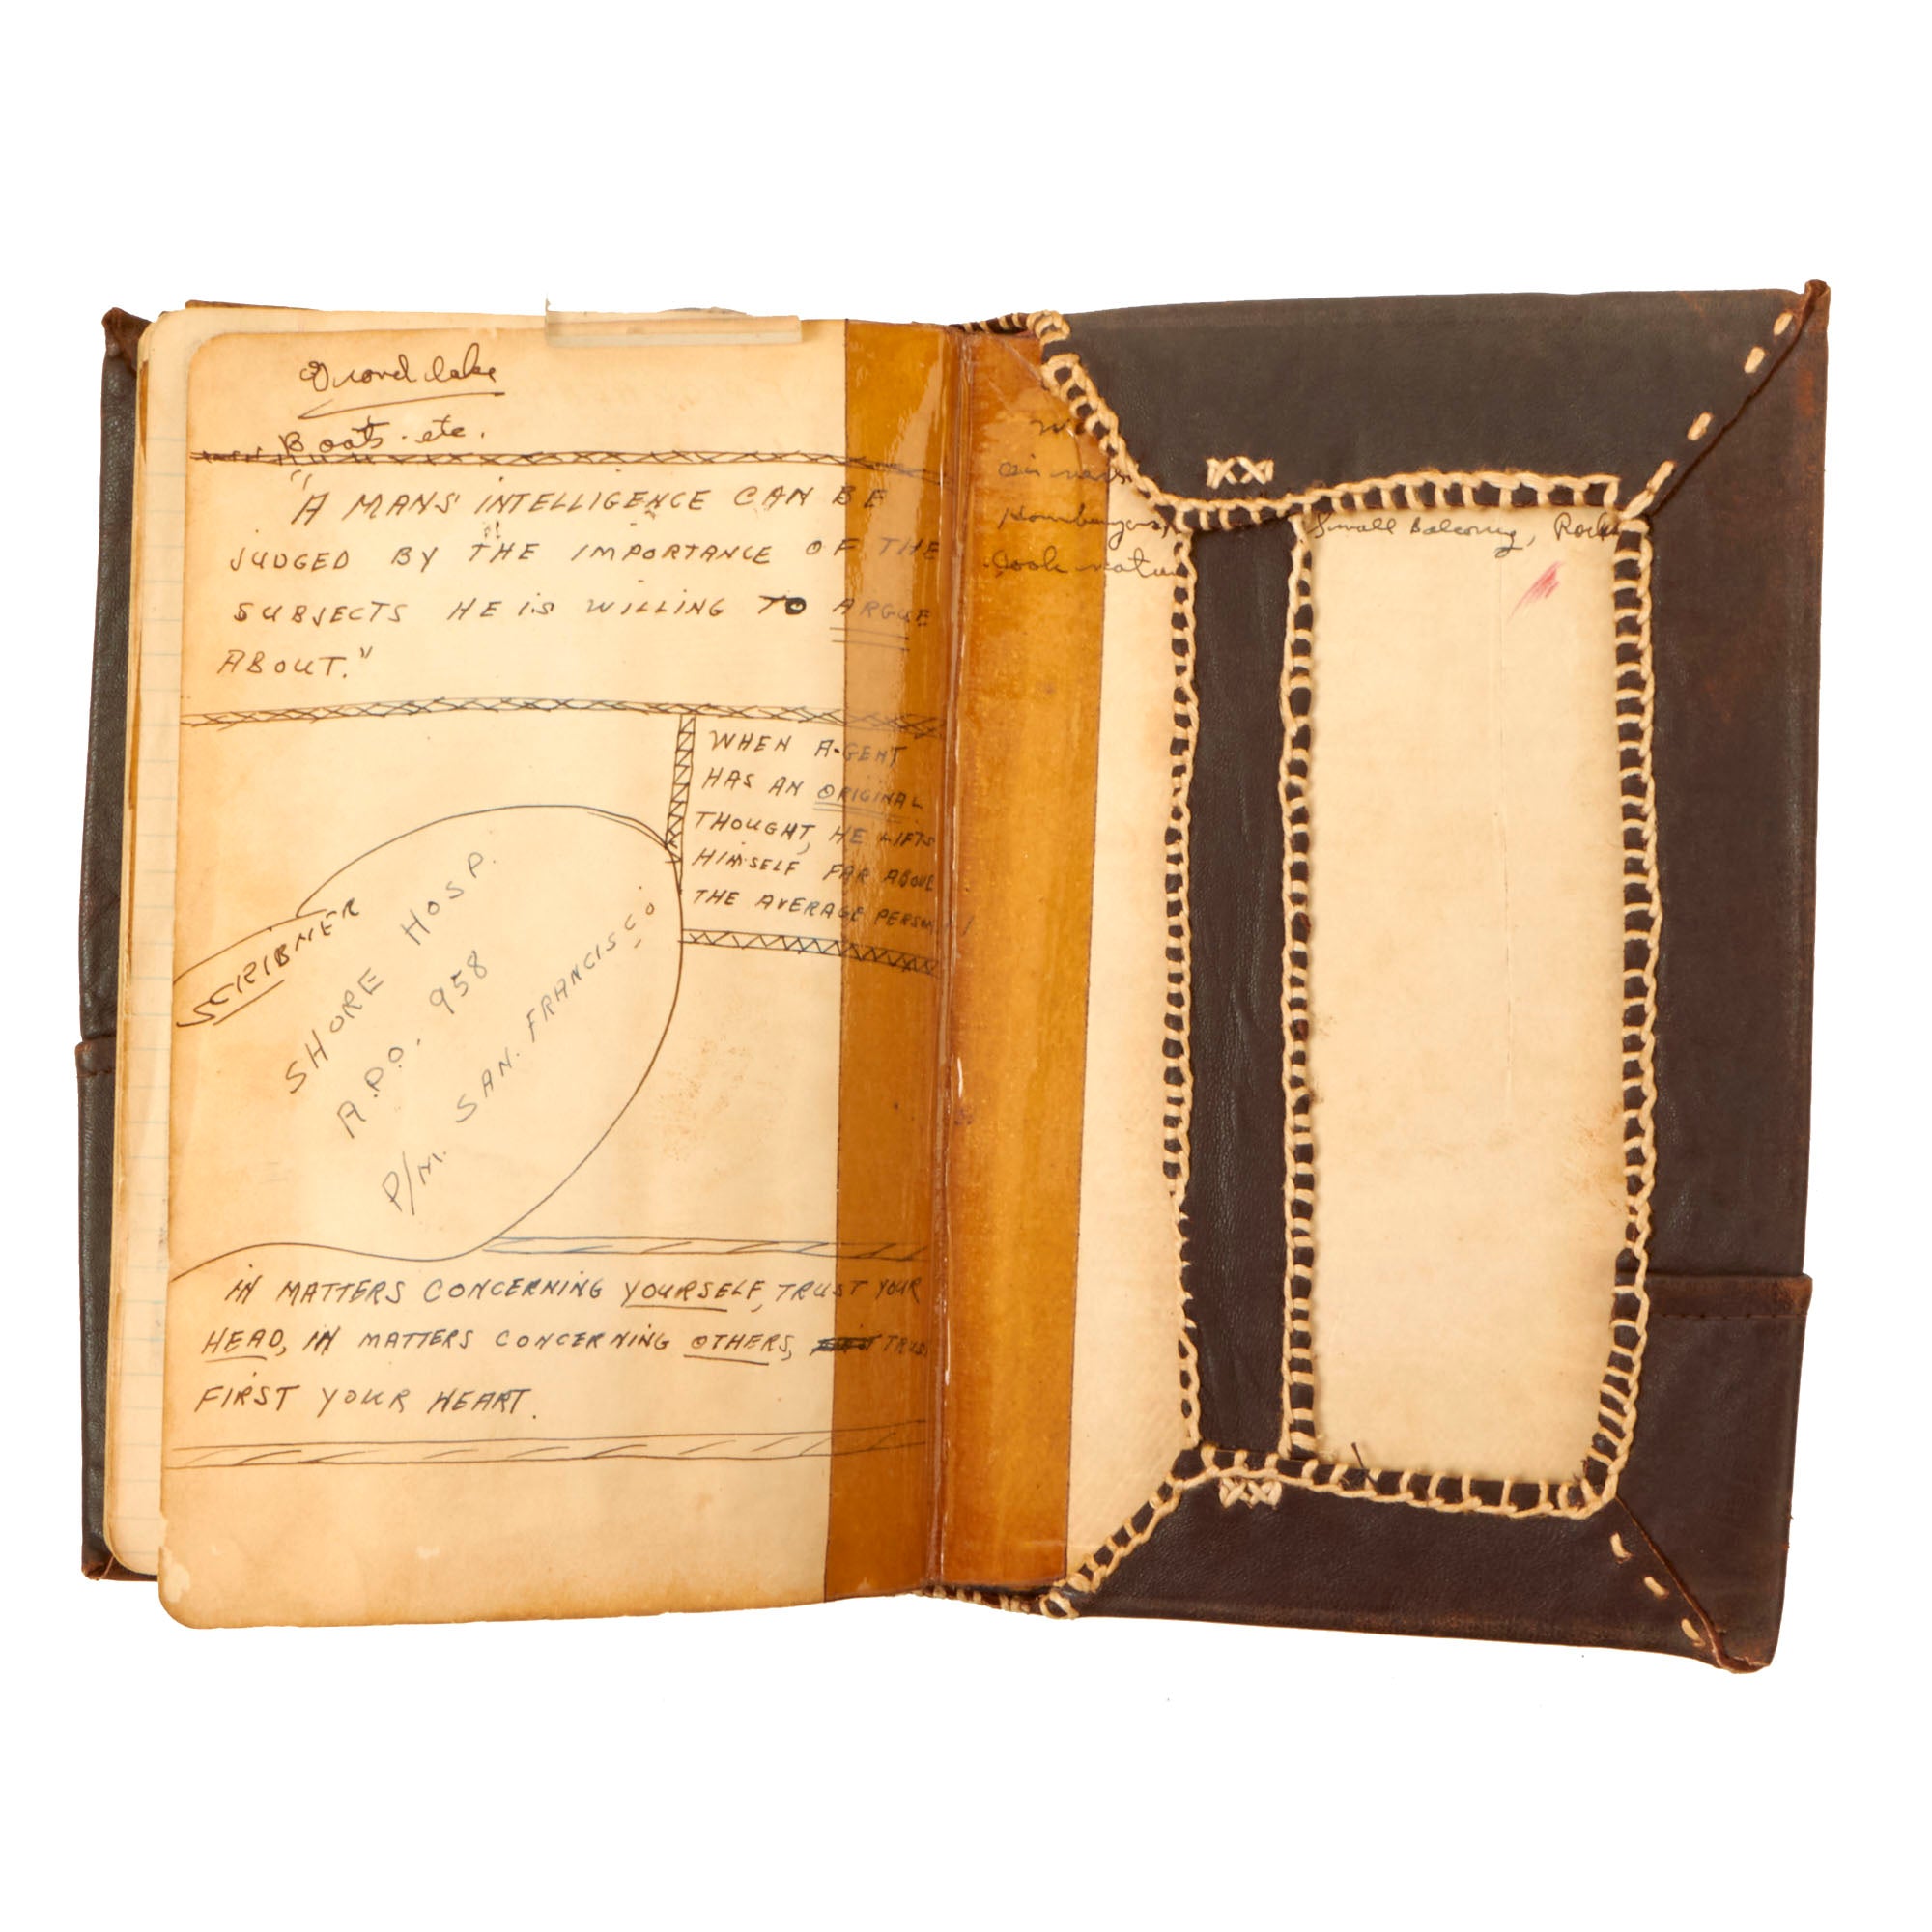 Grand lake
Boats. etc.
"A MANS' INTELLIGENCE CAN BE
JUDGED BY THE IMPORTANCE OF THE
SUBJECTS HE IS WILLING TO ARGUE
ABOUT."
WHEN A-GENT
HAS AN ORIGINAL
THOUGHT, HE LIFTS
HIMSELF FAR ABOVE
THE AVERAGE PERSON!
SCRIBNER
SHORE HOSP.
A.P.O. 958
P/M. SAN. FRANCISCO
IN MATTERS CONCERNING YOURSELF, TRUST YOUR
HEAD, IN MATTERS CONCERNING OTHERS, TRUST
FIRST YOUR HEART.
Hamburgers,
Cook
Small Balcony, Rock